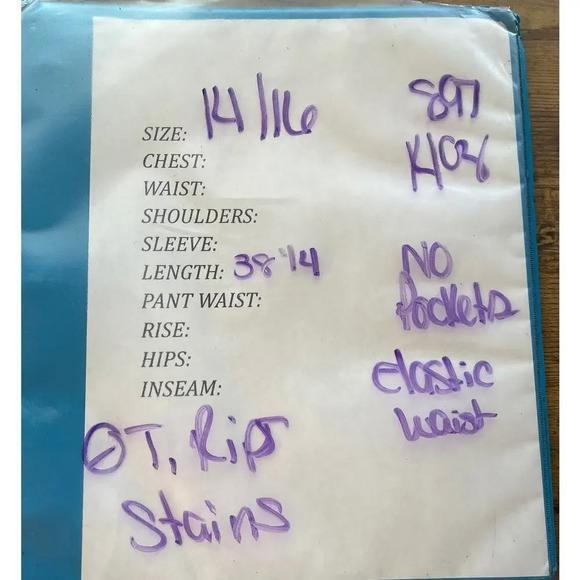 SIZE: 14/16
897
CHEST:
1408
WAIST:
SHOULDERS:
SLEEVE:
LENGTH: 38"14
NO
Pockets
PANT WAIST:
RISE:
HIPS:
elastic
waist
INSEAM:
ØT, Rips
Stains